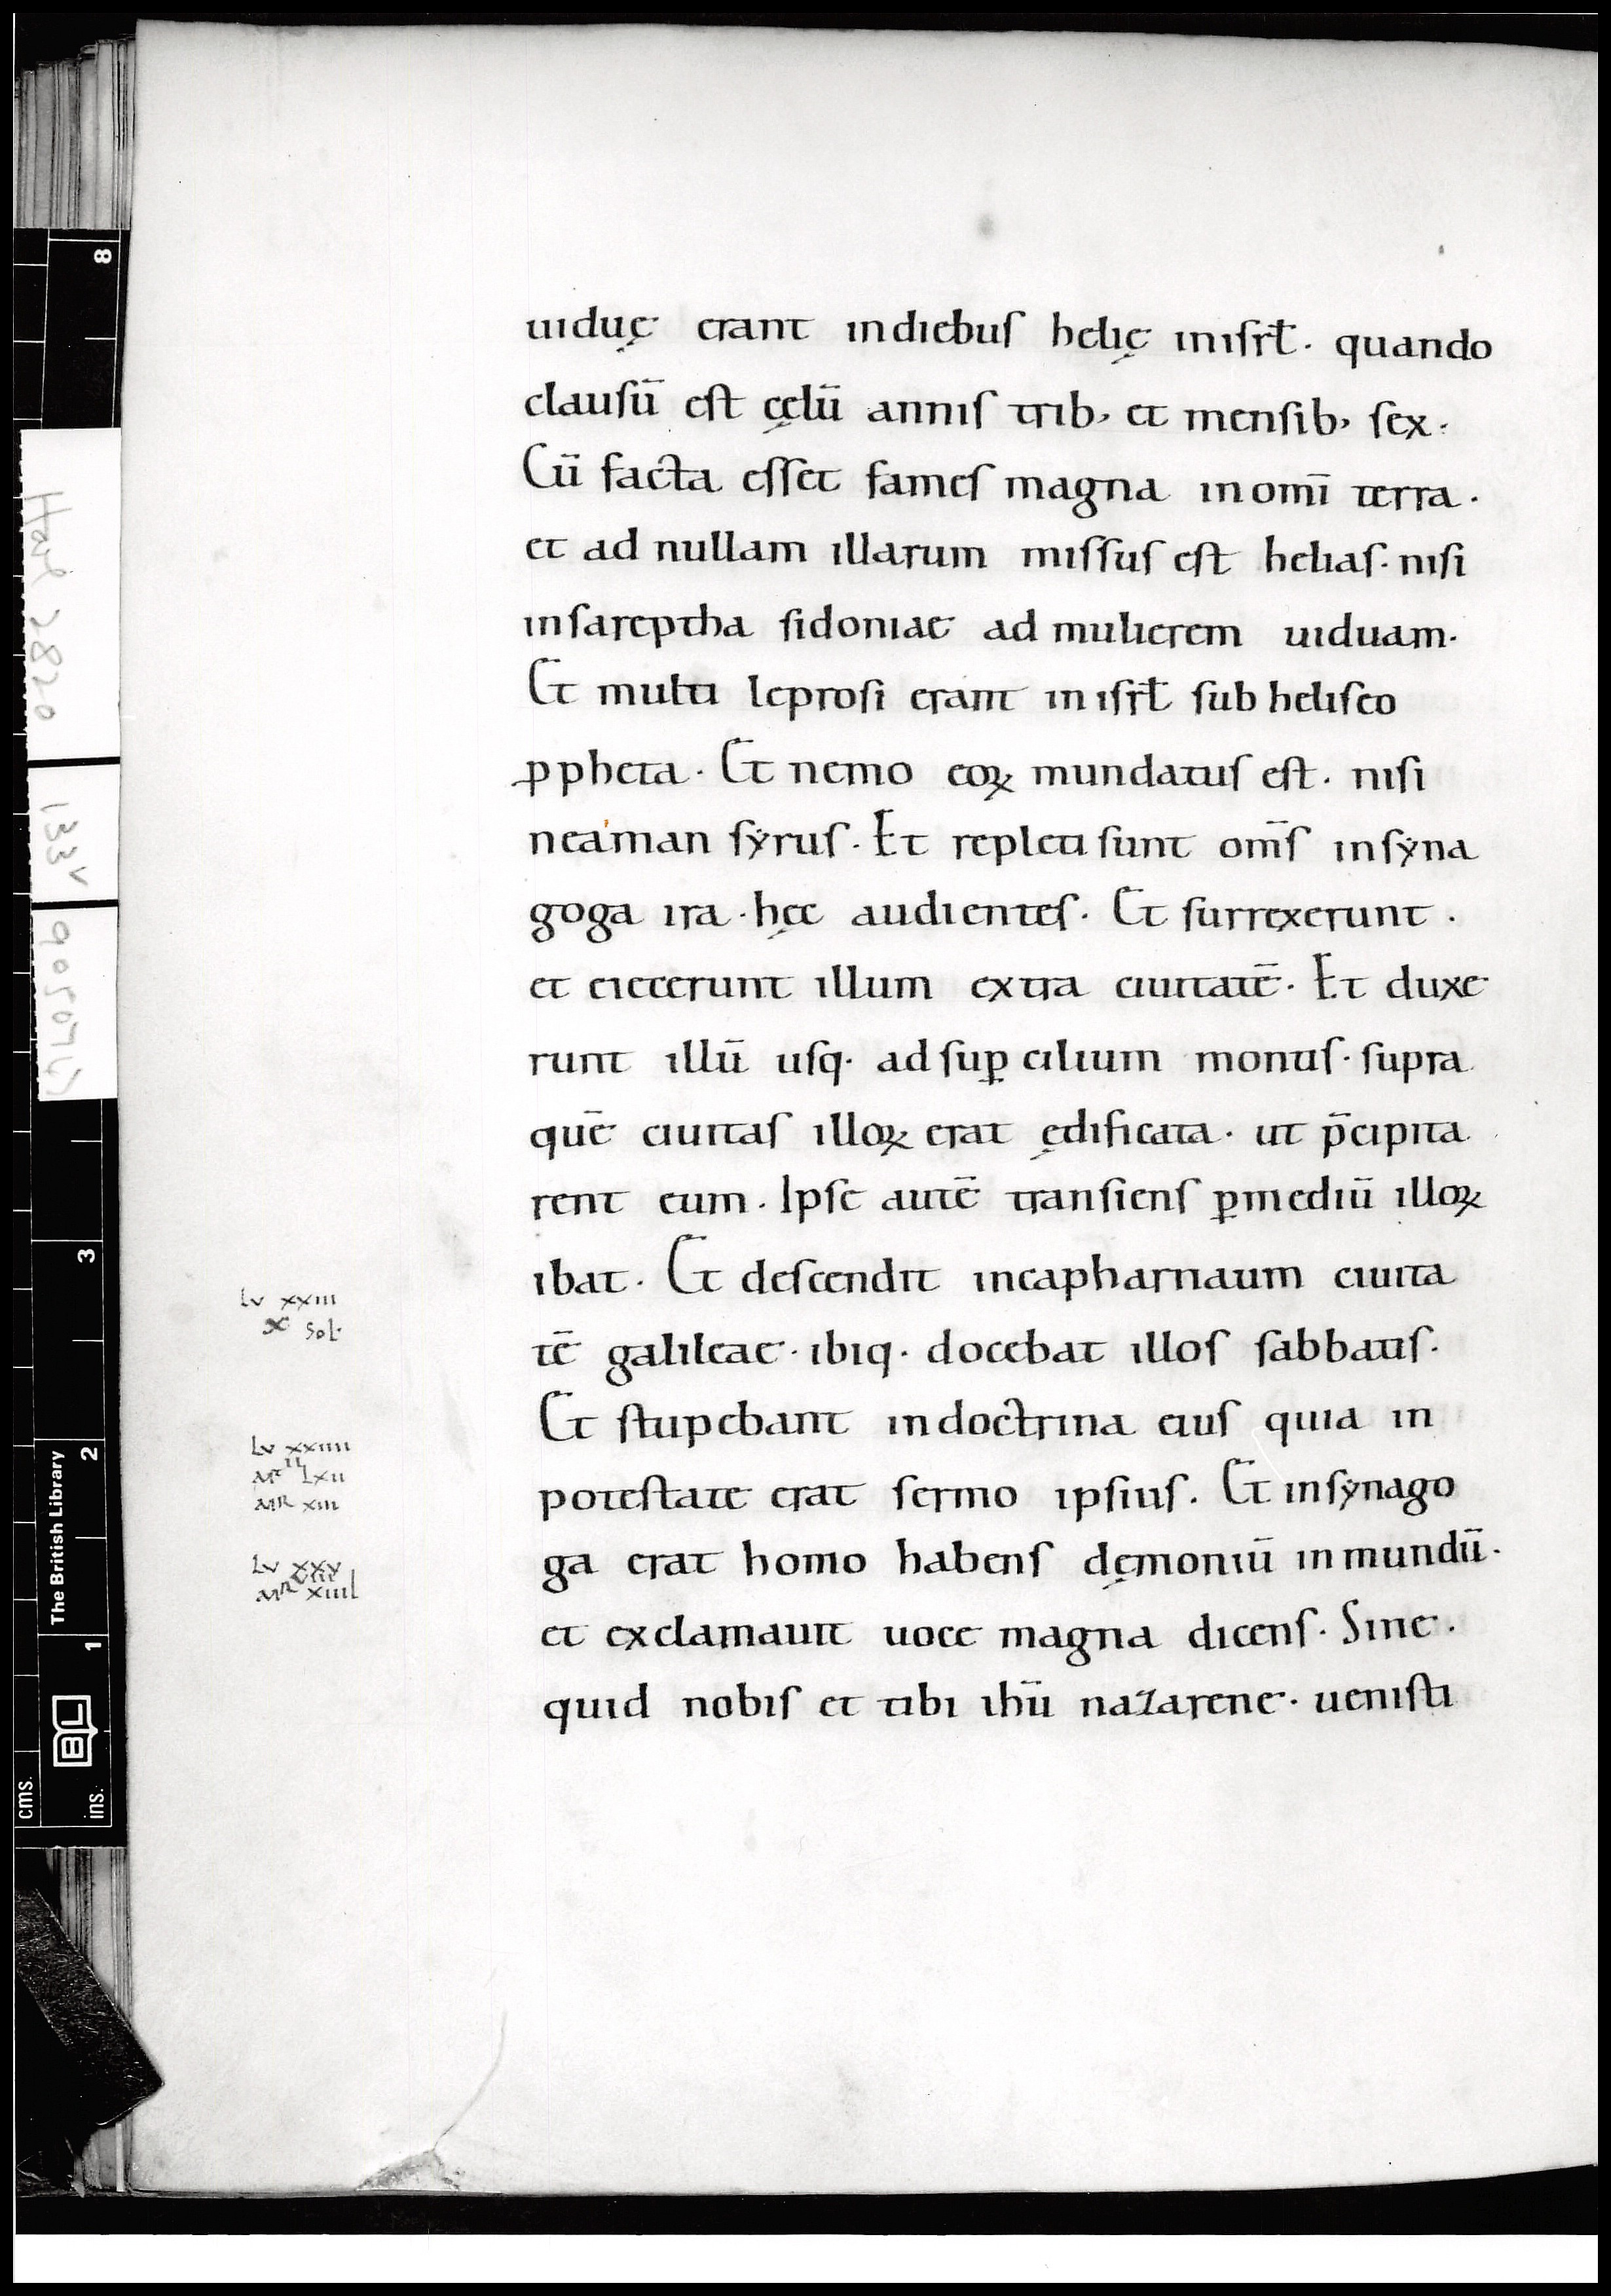 uiduę erant indiebus helię inisrł. quando
clausū est cęlū annis trib, et mensib, sex.
Cū facta esset fames magna inomī terra.
et ad nullam illarum missus est helias. nisi
insareptha sidoniae ad mulierem uiduam.
Et multi leprosi erant in isrł sub heliseo
ꝓpheta. Et nemo eoꝝ mundatus est. nisi
neaman syrus. Et repleti sunt om̄s insyna
goga ira. hęc audientes. Et surrexerunt.
et eiecerunt illum extra ciuitatē. Et duxe
runt illū usq. ad suꝑcilium montis. supra
quē ciuitas illoꝝ erat ędificata. ut p̄cipita
rent eum. Ipse autē transiens ꝑmediū illoꝝ
ibat. Et descendit incapharnaum ciuita
tē galileae. ibiq. docebat illos sabbatis.
Et stupebant indoctrina eius quia in
potestate erat sermo ipsius. Et insynago
ga erat homo habens dęmoniū inmundū.
et exclamauit uoce magna dicens. Sine.
quid nobis et tibi ihū nazarene. uenisti
Lv xxiii
x sol.
Lv xxiiii
mt lxii
mr xiii
Lv xxv
mr xiiii
Harl 2820
133v
The British Library
BL
cms.
ins.
1
2
3
8